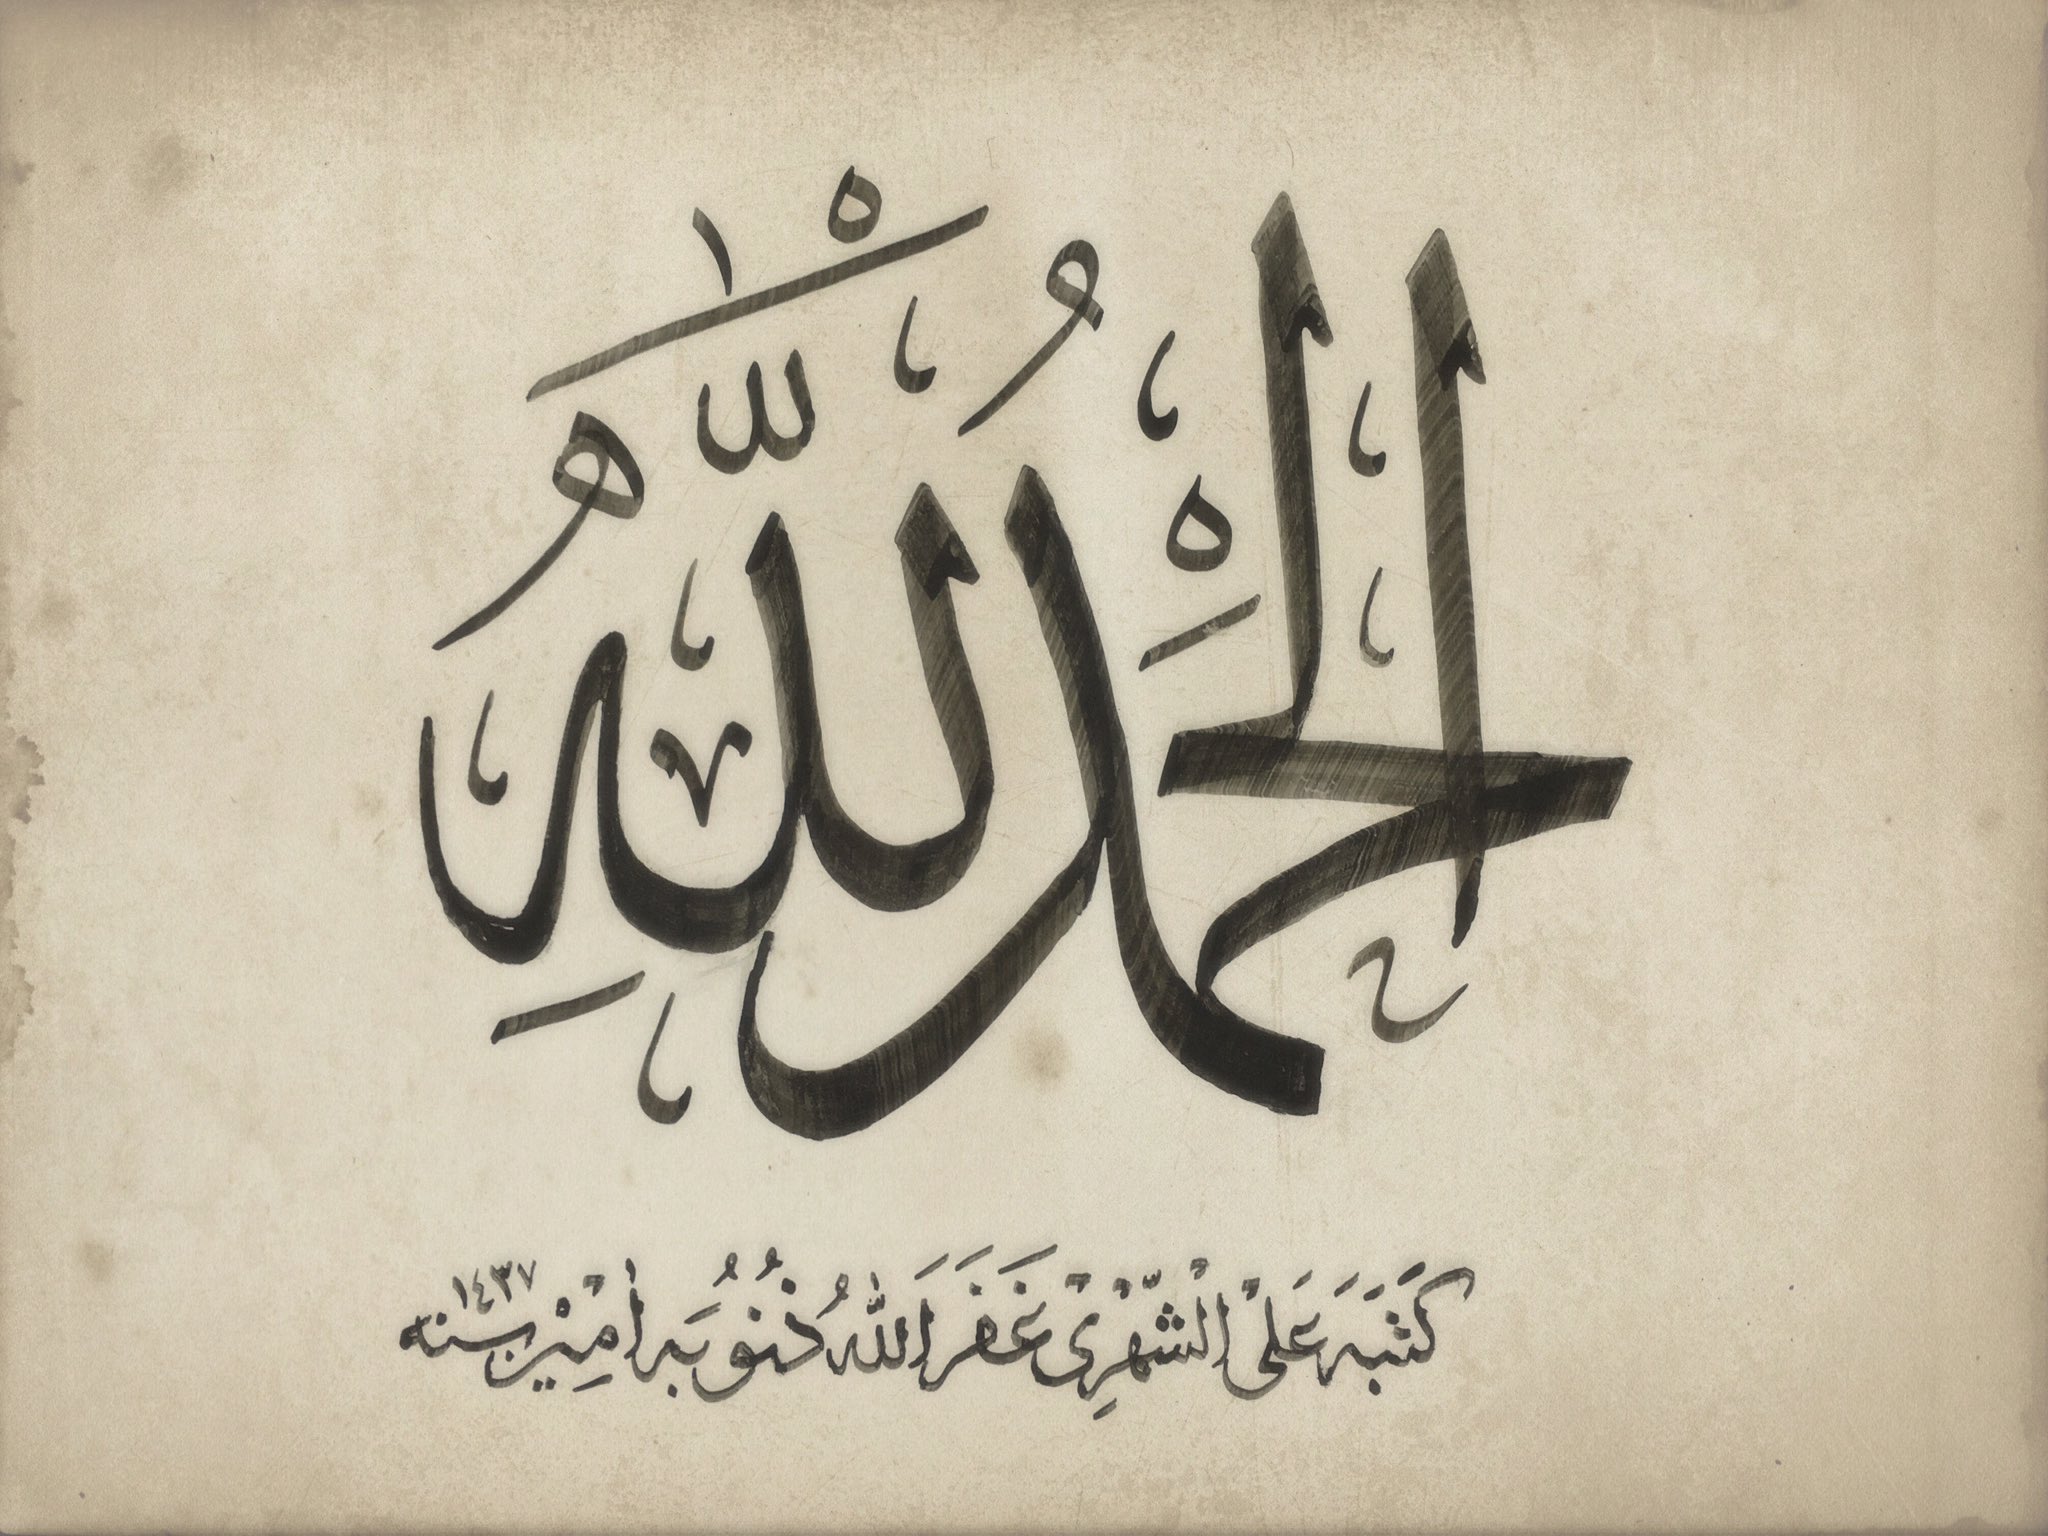 الحمد لله
كَتَبَهُ عَلِيْ الْشِّهْرِيْ غَفَرَ اللهُ ذُنُوبَه أمِيْن سنه ١٤٣٧